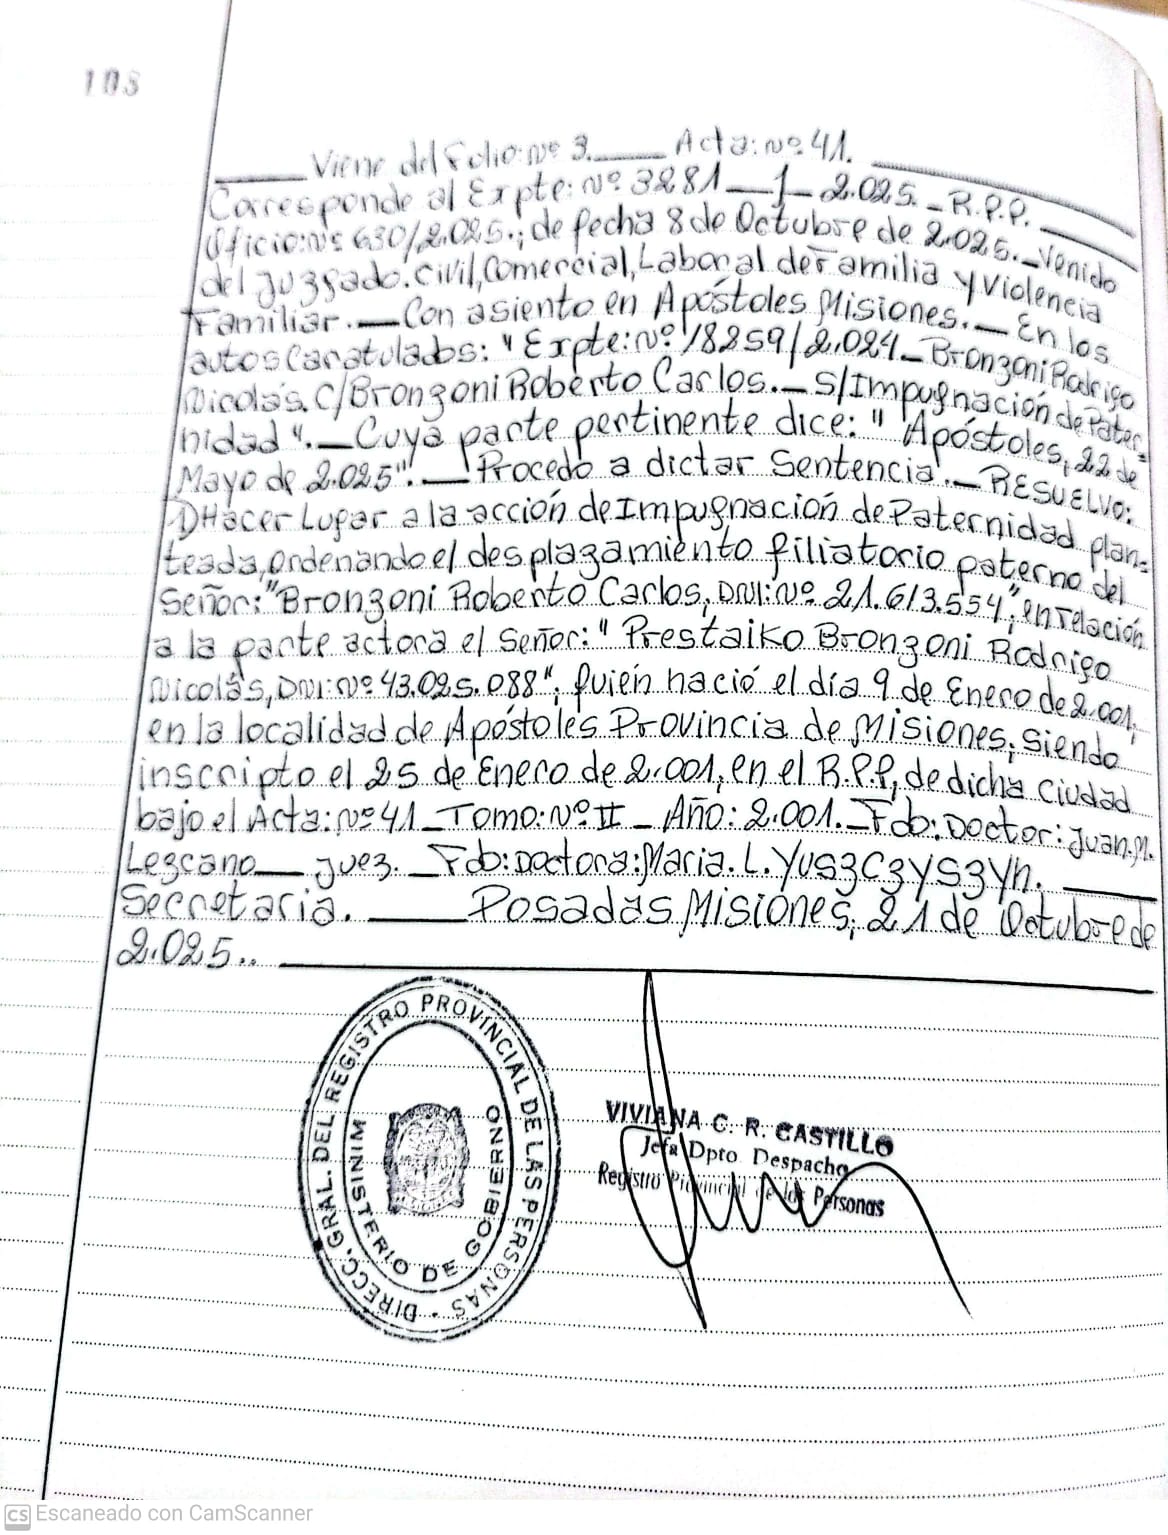 108
Viene del Folio: Nº 3. Acta: Nº 41.
Corresponde al Expte: Nº 3281_1_2.025._R.P.P.
Oficio: Nº 630/2.025.; de fecha 8 de Octubre de 2.025._Venido
del Juzgado. Civil, Comercial, Laboral de Familia y Violencia
Familiar.__Con asiento en Apóstoles Misiones._En los
autos Caratulados: "Expte: Nº 18259/2.024_Bronzoni Rodrigo
Nicolás. C/Bronzoni Roberto Carlos._S/Impugnación de Pater=
nidad"._Cuya parte pertinente dice: "Apóstoles, 22 de
Mayo de 2.025"._Procedo a dictar Sentencia._RESUELVO:
1)Hacer Lugar a la acción de Impugnación de Paternidad plan=
teada, ordenando el desplazamiento filiatorio paterno del
Señor: "Bronzoni Roberto Carlos, DNI: Nº 21.613.554", en relación
a la parte actora el Señor: "Prestaiko Bronzoni Rodrigo
Nicolás, DNI: Nº 43.025.088", quien nació el día 9 de Enero de 2.001,
en la localidad de Apóstoles Provincia de Misiones, siendo
inscripto el 25 de Enero de 2.001, en el R.P.P, de dicha Ciudad
bajo el Acta: Nº 41_Tomo: Nº II_Año: 2.001._Fdo: Doctor: Juan.M.
Lezcano__Juez._Fdo: Doctora: Maria.L.Yuszczyszyn.
Secretaria.____Posadas Misiones, 21 de Octubre de
2.025..
DIRECC. GRAL. DEL REGISTRO PROVINCIAL DE LAS PERSONAS
MINISTERIO DE GOBIERNO
VIVIANA C. R. CASTILLO
Jefa Dpto Despacho
Registro Provincial de las Personas
CS Escaneado con CamScanner